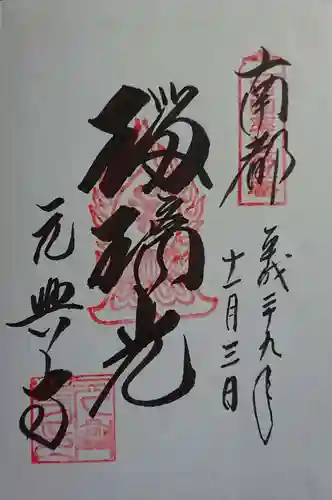 南都
平成二十九年
十一月三日
瑠璃光
元興寺